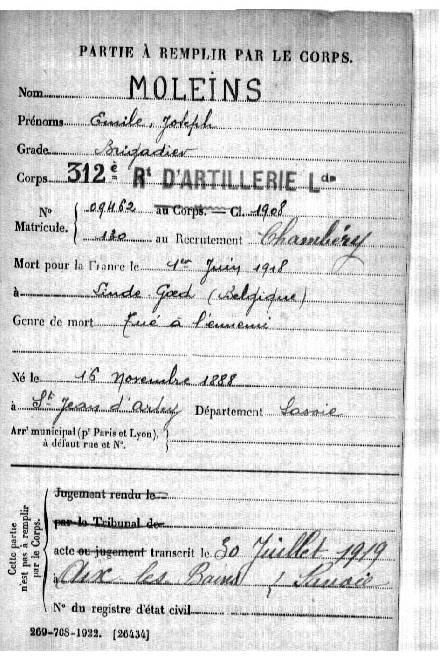 PARTIE À REMPLIR PAR LE CORPS.
Nom MOLEINS
Prénoms Emile, Joseph
Grade Brigadier
Corps 312e Rt D'ARTILLERIE Lde
No Matricule. 09462 au Corps. — Cl. 1908
120 au Recrutement Chambéry
Mort pour la France le 1er Juin 1918
à Linde-Goed (Belgique)
Genre de mort Tué à l'ennemi
Né le 16 Novembre 1888
à St Jean d'Arvey Département Savoie
Arrt municipal (pr Paris et Lyon),
à défaut rue et No.
Cette partie
n'est pas à remplir
par le Corps.
Jugement rendu le
par le Tribunal de
acte ou jugement transcrit le 30 Juillet 1919
à Aix les Bains Savoie
No du registre d'état civil
269-708-1922. [26434]